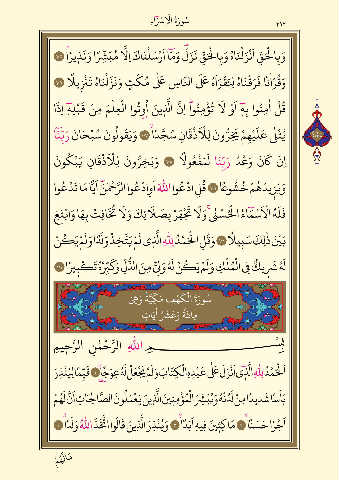 سُورَةُ الْاِسْرَاءِ
٢٩٢
وَبِالْحَقِّ اَنْزَلْنَاهُ وَبِالْحَقِّ نَزَلَ وَمَٓا اَرْسَلْنَاكَ اِلَّا مُبَشِّرًا وَنَذ۪يرًا
وَقُرْاٰنًا فَرَقْنَاهُ لِتَقْرَاَهُ عَلَى النَّاسِ عَلٰى مُكْثٍ وَنَزَّلْنَاهُ تَنْز۪يلًا
قُلْ اٰمِنُوا بِه۪ٓ اَوْ لَا تُؤْمِنُوا اِنَّ الَّذ۪ينَ اُو۫تُوا الْعِلْمَ مِنْ قَبْلِه۪ٓ اِذَا
يُتْلٰى عَلَيْهِمْ يَخِرُّونَ لِلْاَذْقَانِ سُجَّدًا وَيَقُولُونَ سُبْحَانَ رَبِّنَٓا
اِنْ كَانَ وَعْدُ رَبِّنَا لَمَفْعُولًا وَيَخِرُّونَ لِلْاَذْقَانِ يَبْكُونَ
وَيَز۪يدُهُمْ خُشُوعًا قُلِ ادْعُوا اللّٰهَ اَوِ ادْعُوا الرَّحْمٰنَ اَيًّا مَا تَدْعُوا
فَلَهُ الْاَسْمَٓاءُ الْحُسْنٰى وَلَا تَجْهَرْ بِصَلَاتِكَ وَلَا تُخَافِتْ بِهَا وَابْتَغِ
بَيْنَ ذٰلِكَ سَب۪يلًا وَقُلِ الْحَمْدُ لِلّٰهِ الَّذ۪ي لَمْ يَتَّخِذْ وَلَدًا وَلَمْ يَكُنْ
لَهُ شَر۪يكٌ فِي الْمُلْكِ وَلَمْ يَكُنْ لَهُ وَلِيٌّ مِنَ الذُّلِّ وَكَبِّرْهُ تَكْب۪يرًا
سُورَةُ الْكَهْفِ مَكِّيَّةٌ وَهِيَ
مِائَةٌ وَعَشْرُ اٰيَاتٍ
بِسْمِ اللّٰهِ الرَّحْمٰنِ الرَّح۪يمِ
اَلْحَمْدُ لِلّٰهِ الَّذ۪ٓي اَنْزَلَ عَلٰى عَبْدِهِ الْكِتَابَ وَلَمْ يَجْعَلْ لَهُ عِوَجًا قَيِّمًا لِيُنْذِرَ
بَأْسًا شَد۪يدًا مِنْ لَدُنْهُ وَيُبَشِّرَ الْمُؤْمِن۪ينَ الَّذ۪ينَ يَعْمَلُونَ الصَّالِحَاتِ اَنَّ لَهُمْ
اَجْرًا حَسَنًا مَاكِث۪ينَ ف۪يهِ اَبَدًا وَيُنْذِرَ الَّذ۪ينَ قَالُوا اتَّخَذَ اللّٰهُ وَلَدًا
مَا لَهُمْ